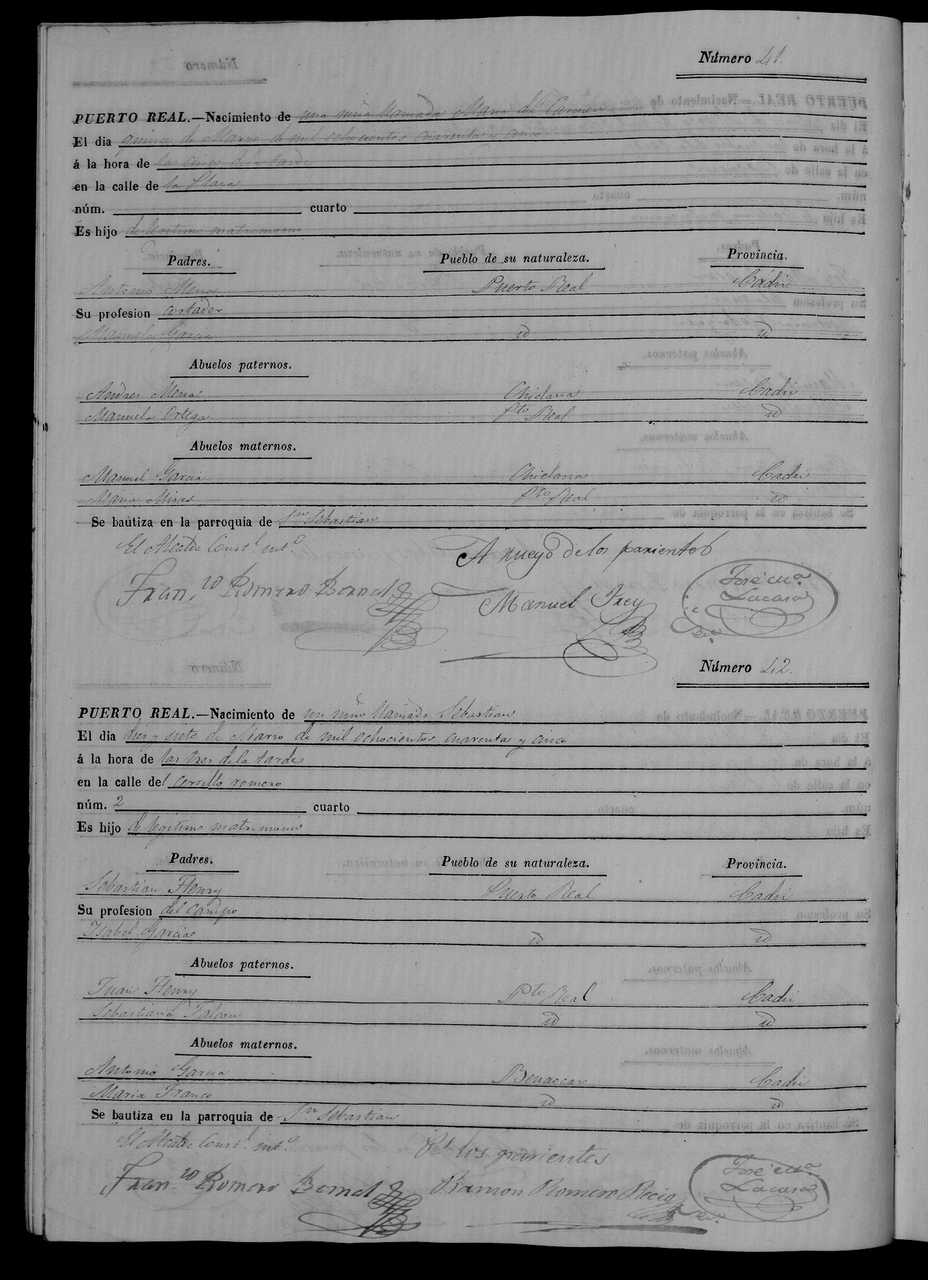 Número 41.
PUERTO REAL.—Nacimiento de una niña llamada Maria del Carmen
El dia quince de Marzo de mil ochocientos cuarenta y cinco
á la hora de las once de la tarde
en la calle de la Plaza
núm. cuarto
Es hijo de lejitimo matrimonio
Padres. Pueblo de su naturaleza. Provincia.
Antonio Mena Puerto Real Cadiz
Su profesion cortador
Manuela Garcia id id
Abuelos paternos.
Andres Mena Chiclana Cadiz
Manuela Ortega Pto Real id
Abuelos maternos.
Manuel Garcia Chiclana Cadiz
Maria Pto Real id
Se bautiza en la parroquia de Sn Sebastian
El Alcalde Const.l int.o
A ruego de los parientes
Fran.co Romero Bernal
Manuel Frey
José Ma
Lucasa
Número 42.
PUERTO REAL.—Nacimiento de un niño llamado Sebastian
El dia diez y siete de Marzo de mil ochocientos cuarenta y cinco
á la hora de las tres de la tarde
en la calle del corrillo romero
núm. 2 cuarto
Es hijo de lejitimo matrimonio
Padres. Pueblo de su naturaleza. Provincia.
Sebastian Henry Puerto Real Cadiz
Su profesion del campo
Isabel Garcia id id
Abuelos paternos.
Juan Henry Pto Real Cadiz
Sebastiana Falcon id id
Abuelos maternos.
Antonio Garcia Benaocaz Cadiz
Maria Franco id id
Se bautiza en la parroquia de Sn Sebastian
El Alcalde Const.l int.o
los parientes
Fran.co Romero Bernal
Ramon Romero
José Ma
Lucasa